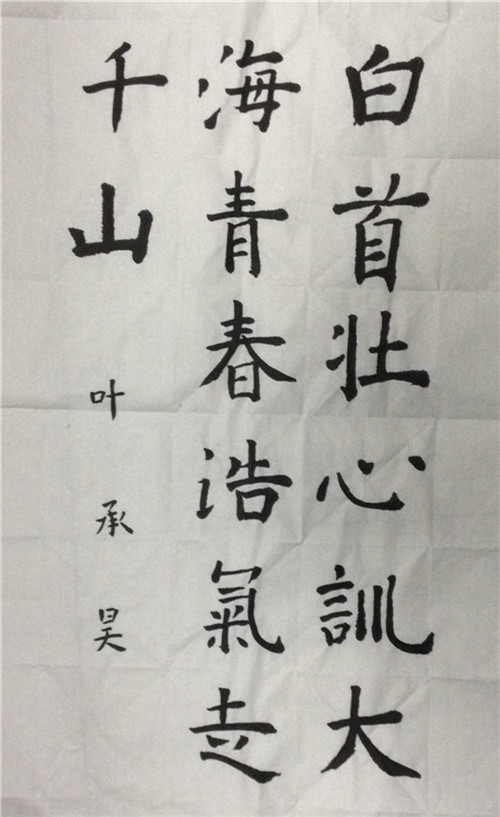 白首壮心訓大
海青春浩氣走
千山
叶承昊